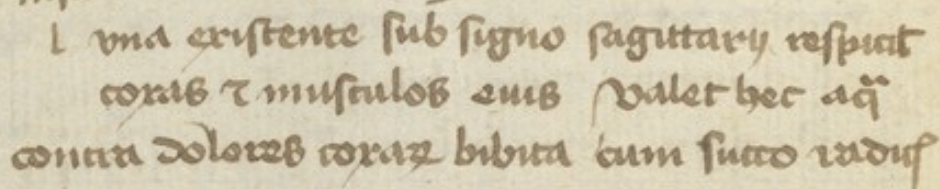 l vna existente sub signo sagittarij respicit
coxas ⁊ musculos eius valet hec aqua
contra dolores coxaꝝ bibita cum succo radicis